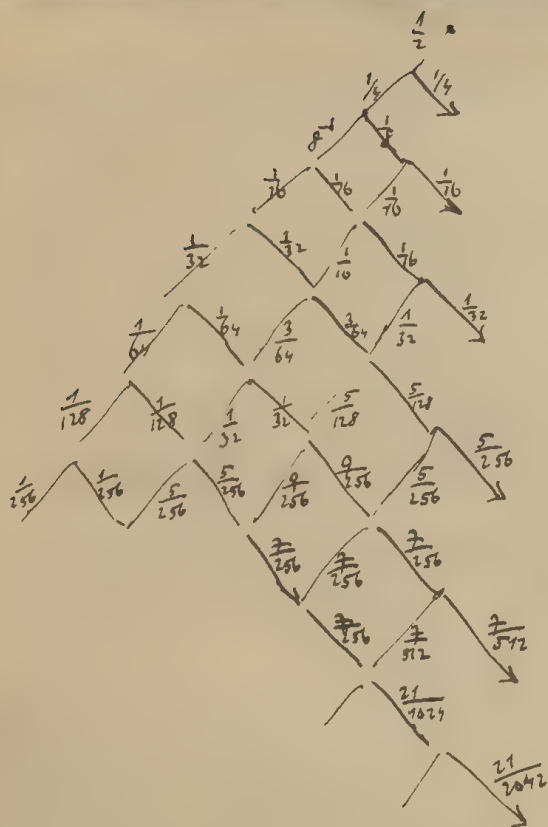 1/2
1/4 1/4
8⁻¹ 1/8
1/16 1/16 1/16 1/16
1/32 1/32 1/16 1/16 1/32
1/64 1/64 3/64 3/64 1/32
1/128 1/128 1/32 1/32 5/128 5/128
1/256 1/256 5/256 5/256 9/256 9/256 5/256 5/256
7/256 7/256 7/256
7/256 7/512 7/512
21/1024
21/2042